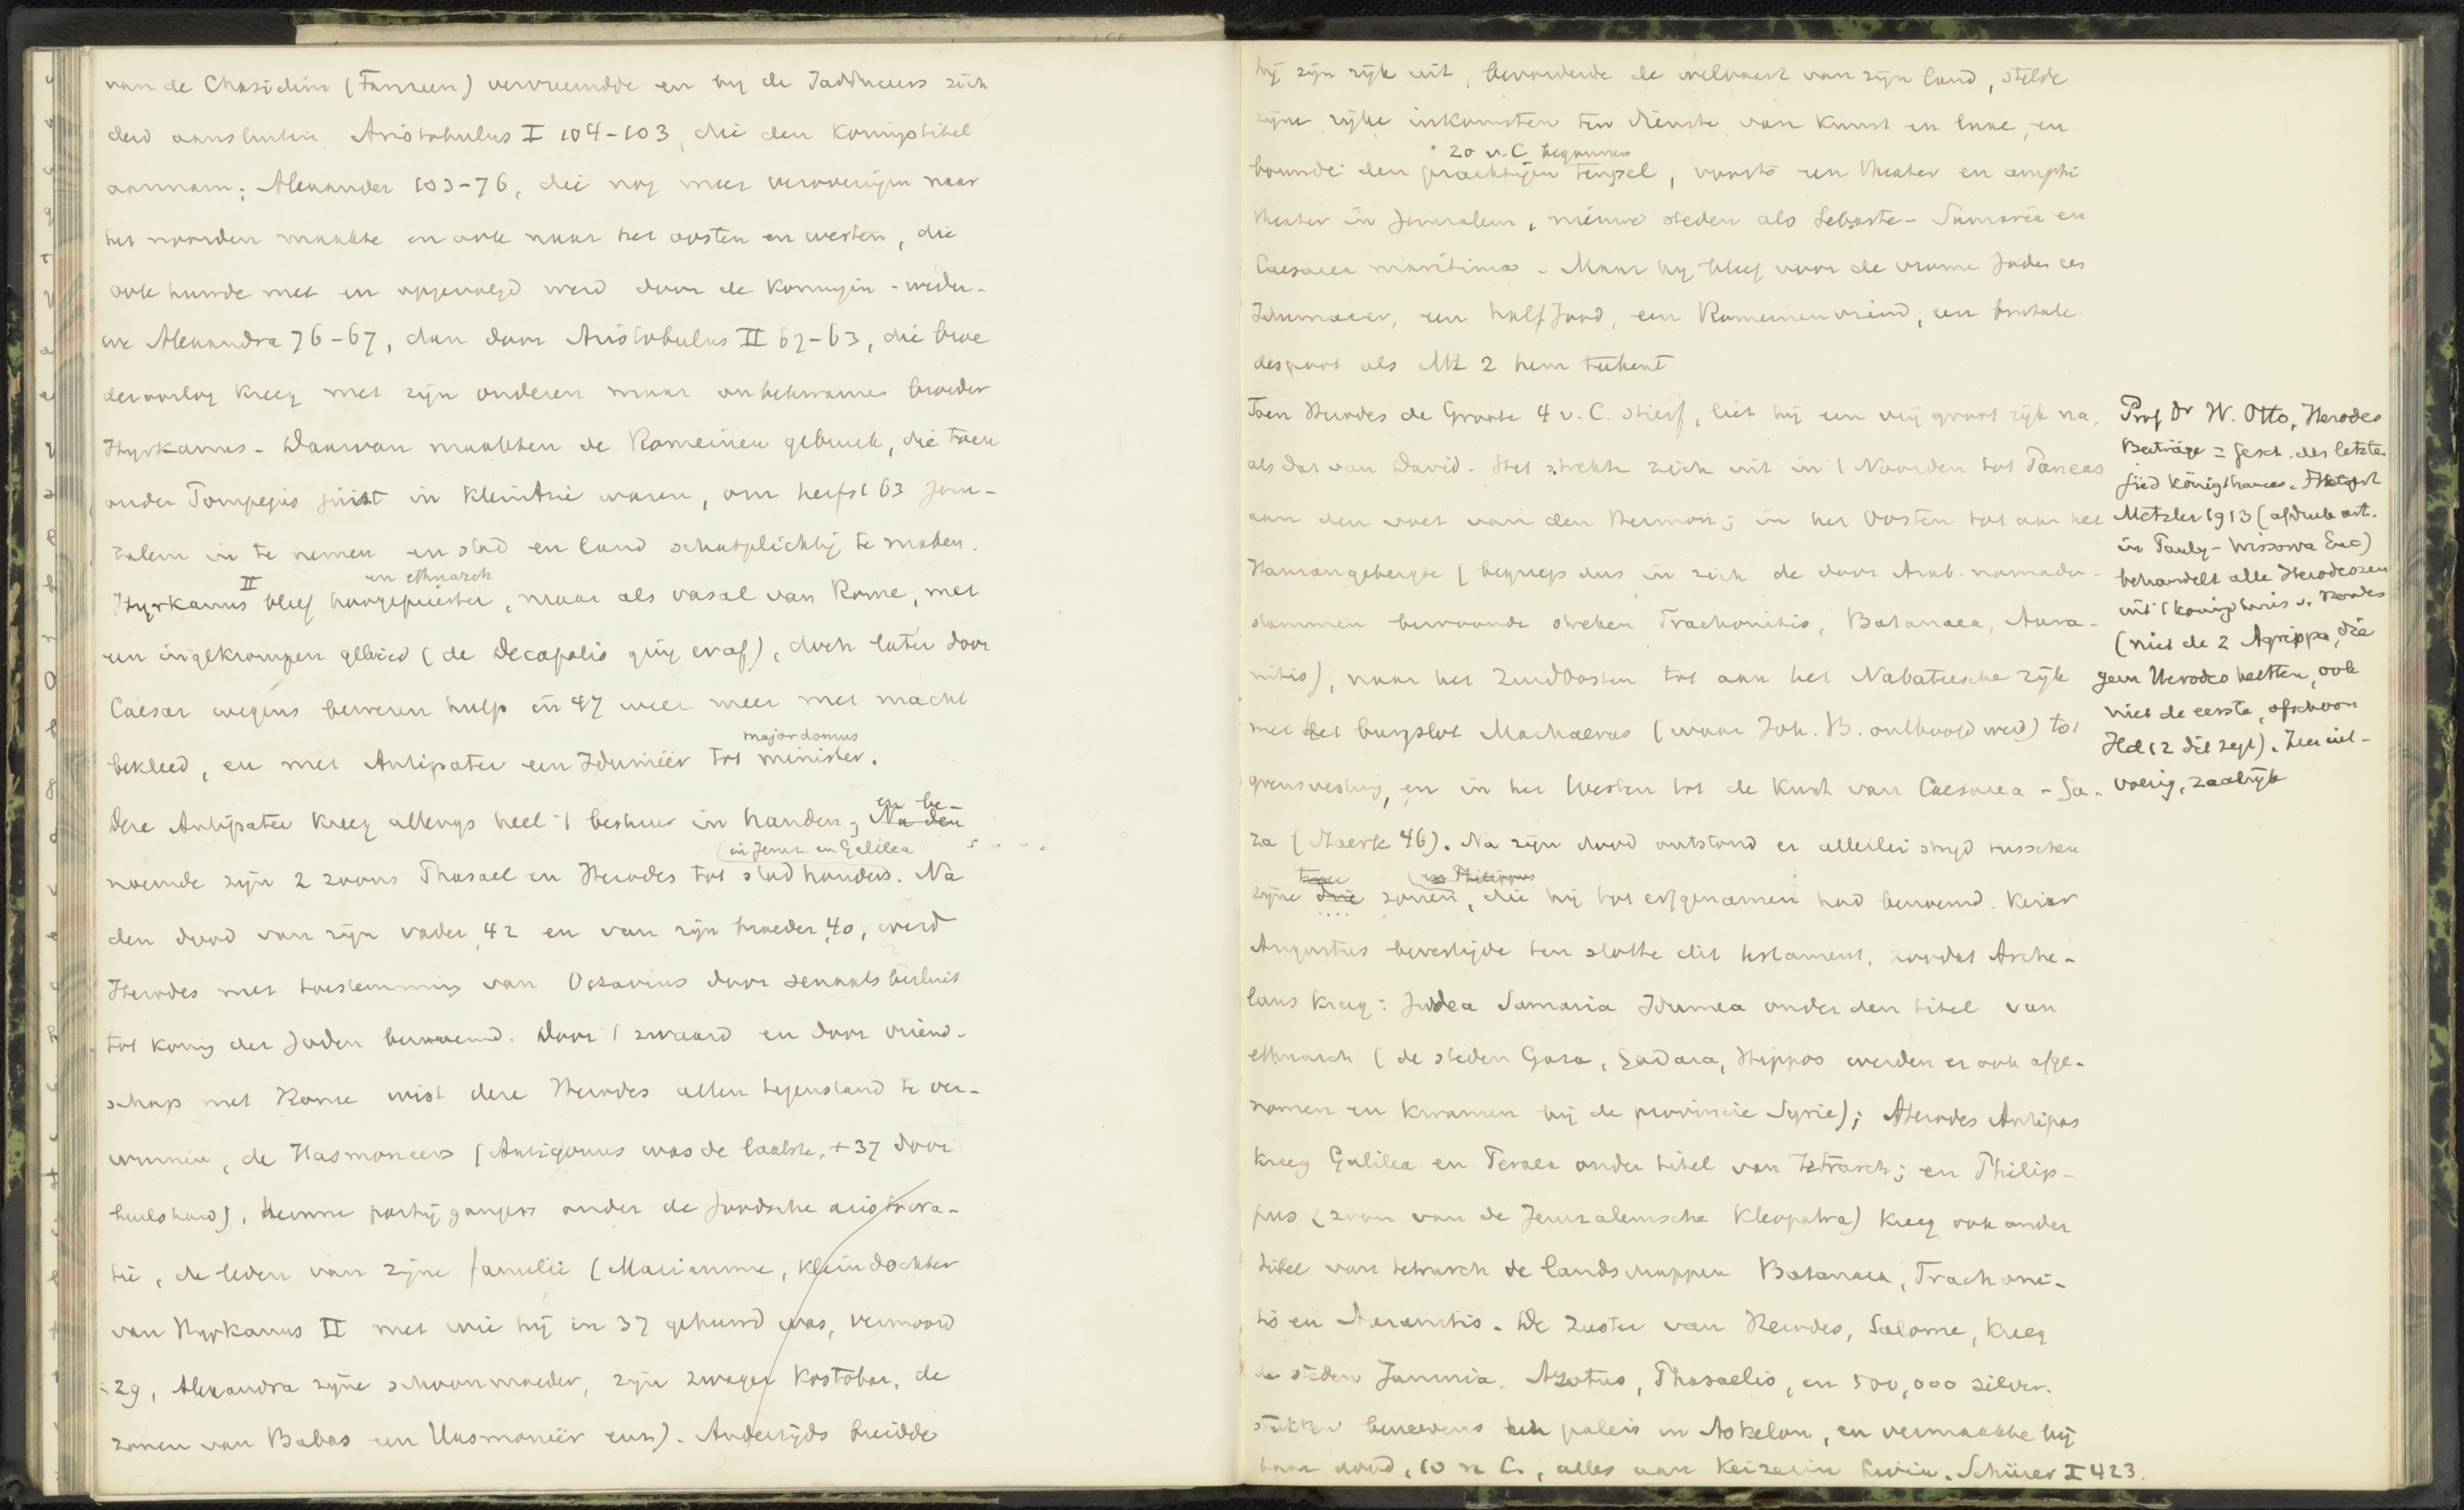 van de Chasidim (Farizeen) vervreemdde en bij de Sadduceers zich
deed aansluiten. Aristobulus I 104-103, die den koningstitel
aannam; Alexander 103-76, die nog meer veroveringen naar
het noorden maakte en ook naar het oosten en westen, die
ook hunde met en opgevolgd werd door de koningin-wedu-
we Alexandra 76-67, dan door Aristobulus II 67-63, die broe
deroorlog kreeg met zijn ouderen maar onbekwamen broeder
Hyrkanus - Daarvan maakten de Romeinen gebruik, die toen
onder Pompejus juist in KleinAzie waren, om herfst 63 Jeru-
zalem in te nemen en stad en land schatplichtig te maken.
II en ethnarch
Hyrkanus bleef hoogepriester, maar als vasal van Rome, met
een ingekrompen gebied (de Decapolis ging eraf), doch later door
Caesar wegens bewezen hulp in 47 weer meer met macht
majordomus
bekleed, en met Antipater een Idumeër tot minister.
en be-
Deze Antipater kreeg allengs heel 't bestuur in handen, Na den
(in Jeruz. en Galilea
noemde zijn 2 zoons Phasael en Herodes tot stadhouders. Na
den dood van zijn vader 42 en van zijn broeder 40, werd
Herodes met toestemming van Octavius door senaatsbesluit
tot koning der Joden benoemd. Door 't zwaard en door vriend-
schap met Rome wist deze Herodes allen tegenstand te ver-
winnen, de Hasmoneers (Antigonus was de laatste, +37 door
beulshand), hunne partijgangers onder de Joodsche aristocra-
tie, de leden van zijne familie (Mariamme, kleindochter
van Hyrkanus II met wie hij in 37 gehuwd was, vermoord
29, Alexandra zijne schoonmoeder, zijn zwager Kostobar, de
zonen van Babas een Hasmoneër enz). Anderzijds breidde
hij zijn rijk uit, bevorderde de welvaart van zijn land, stelde
zijne rijke inkomsten ten dienste van kunst en luxe, en
20 v.C. begonnen
bouwde den prachtigen tempel, voorts een theater en amphi
theater in Jeruzalem, nieuwe steden als Sebaste-Samaria en
Caesarea maritima - Maar hij bleef voor de vrome Joden een
Idumaeer, een half Jood, een Romeinenvriend, een brutale
despoot als Mt 2 hem teekent
Toen Herodes de Groote 4 v. C. stierf, liet hij een vrij groot rijk na,
als dat van David. Het strekte zich uit in 't Noorden tot Paneas
aan den voet van den Hermon; in het Oosten tot aan het
Haurangebergte (begreep dus in zich de door Arab. nomaden-
stammen bewoonde streken Trachonitis, Batanaea, Aura-
nitis), naar het Zuidoosten tot aan het Nabateesche rijk
met het burgslot Machaerus (waar Joh. B. onthoofd werd) tot
grensvesting, en in het Westen tot de kust van Caesarea - Ga-
za (Maerk 46). Na zijn dood ontstond er allerlei strijd tusschen
twee (en Philippus
zijne drie zonen, die hij tot erfgenamen had benoemd. Keizer
Augustus bevestigde ten slotte dit testament, zoodat Arche-
laus kreeg: Judea Samaria Idumea onder den titel van
ethnarch (de steden Gaza, Gadara, Hippos werden er ook afge-
nomen en kwamen bij de provincie Syrie); Herodes Antipas
kreeg Galilea en Peraea onder titel van tetrarch; en Philip-
pus (zoon van de Jeruzalemsche Kleopatra) kreeg ook onder
titel van tetrarch de landschappen Batanaea, Trachoni-
tis en Auranitis. De zuster van Herodes, Salome, kreeg
de steden Jamnia, Azotus, Phasaelis, en 500,000 zilver-
stukken benevens een paleis in Askelon, en vermaakte bij
haar dood, 10 n C., alles aan keizerin Livia. Schürer I 423.
Prof Dr W. Otto, Herodes
Beiträge z Gesch. des letzten
jüd Königshauses.
Metzler 1913 (afdruk art.
in Pauly-Wissowa Enc)
behandelt alle Herodeszen
uit 't koningshuis v. Herodes
(niet de 2 Agrippa, die
geen Herodes heetten, ook
niet de eerste, ofschoon
Hd 12 dit zegt). Zeer uit-
voerig, zaakrijk